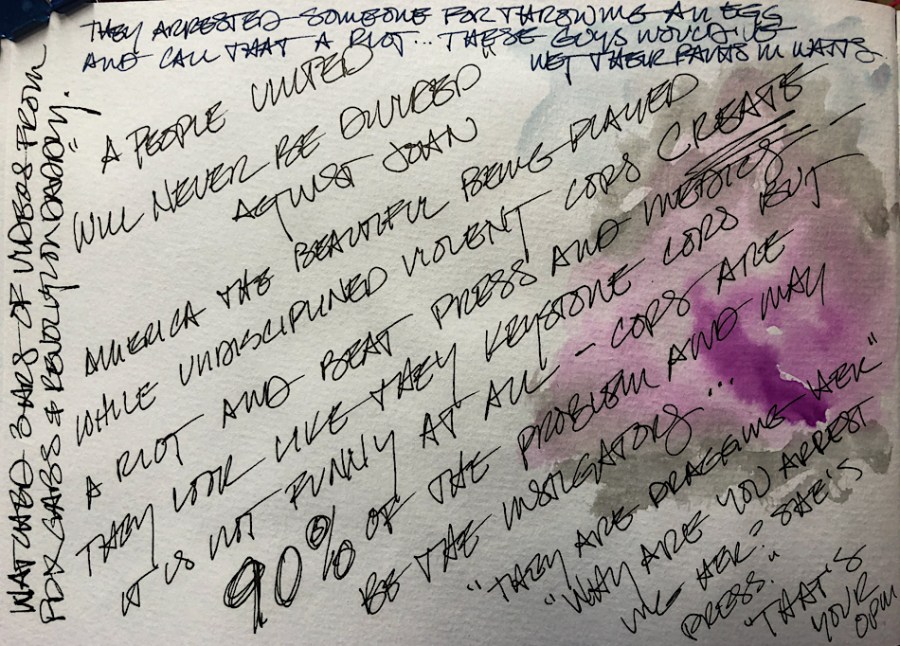 THEY ARRESTED SOMEONE FOR THROWING AN EGG
AND CALL THAT A RIOT... THESE GUYS WOULD'VE
WET THEIR PANTS IN WATTS.
"A PEOPLE UNITED
WILL NEVER BE DIVIDED"
ACTIVIST JOAN
AMERICA THE BEAUTIFUL BEING PLAYED
WHILE UNDISCIPLINED VIOLENT COPS CREATE
A RIOT AND BEAT PRESS AND MEDICS --
THEY LOOK LIKE THEY KEYSTONE COPS BUT
IT IS NOT FUNNY AT ALL - COPS ARE
90% OF THE PROBLEM AND MAY
BE THE INSTIGATORS...
"THEY ARE DRAGGING HER"
"WHY ARE YOU ARREST
ING HER? SHE'S
PRESS." "THAT'S
YOUR
OPIN
WATCHED 3 DAYS OF VIDEOS FROM
PDX GABS & REVOLUTION DADDY.